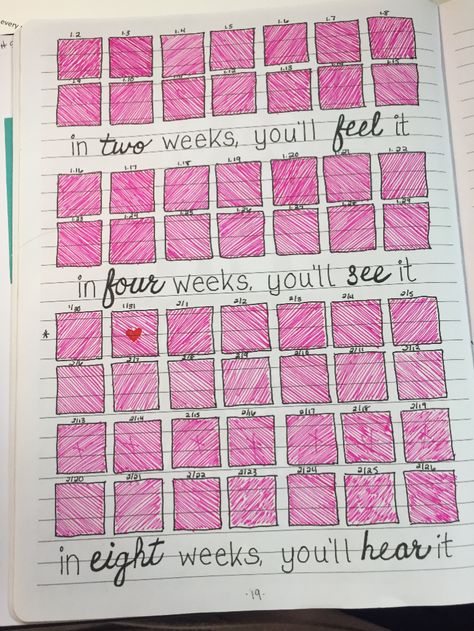 every
1.2 1.3 1.4 1.5 1.6 1.7 1.8
1.9 1.10 1.11 1.12 1.13 1.14 1.15
in two weeks, you'll feel it
1.16 1.17 1.18 1.19 1.20 1.21 1.22
1.25 1.26 1.27 1.28 1.29
in four weeks, you'll see it
* 1/30 1/31 2/1 2/2 2/3 2/4 2/5
2/6 2/7 2/8 2/9 2/10 2/11 2/12
2/13 2/14 2/15 2/16 2/17 2/18 2/19
2/20 2/21 2/22 2/23 2/24 2/25 2/26
in eight weeks, you'll hear it
·19·